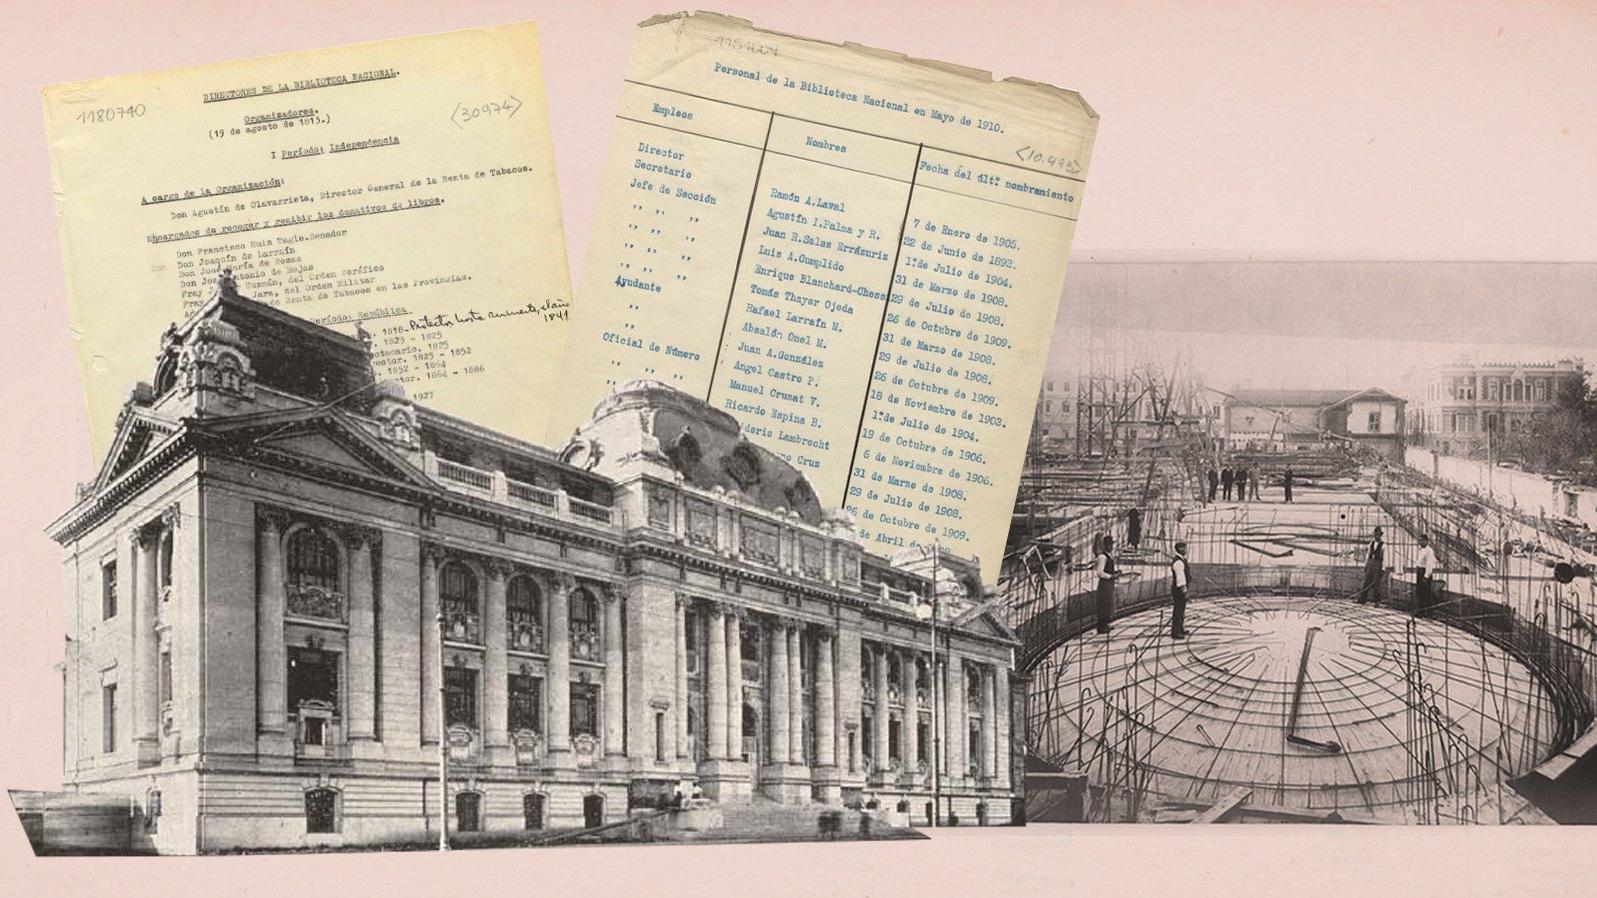 DIRECTORES DE LA BIBLIOTECA NACIONAL.
1180740
<30974>
Organizadores.
(19 de agosto de 1813.)
I Período: Independencia
A cargo de la Organización:
Don Agustín de Olavarrieta, Director General de la Renta de Tabacos.
Encargados de recoger y recibir los donativos de libros.
Don Francisco Ruiz Tagle. Senador
Don Joaquín de Larraín
Don José María de Rozas
Don José Antonio de Rojas
Guzmán, del Orden Seráfico
Jara, del Orden Militar
Renta de Tabacos en las Provincias.
Período: República
1818-Protector hasta el año 1841
1823 - 1825
1825
1825 - 1852
1852 - 1864
1864 - 1886
1927
Personal de la Biblioteca Nacional en Mayo de 1910.
Empleos
Nombres
Fecha del últ.º nombramiento
Director
Secretario
Jefe de Sección
,, ,, ,,
,, ,, ,,
,, ,, ,,
,, ,, ,,
Ayudante
,,
,,
Oficial de Número
,, ,, ,,
,,
Ramón A.Laval
Agustín I.Palma y R.
Juan R.Salas Errázuriz
Luis A.Cumplido
Enrique Blanchard-Chessi
Tomás Thayer Ojeda
Rafael Larraín M.
Absalón Onel M.
Juan A.González
Angel Castro P.
Manuel Cruzat V.
Ricardo Espina B.
derio Lambrecht
Cruz
7 de Enero de 1905.
22 de Junio de 1892.
1º de Julio de 1904.
31 de Marzo de 1908.
29 de Julio de 1908.
26 de Octubre de 1909.
31 de Marzo de 1908.
29 de Julio de 1908.
26 de Octubre de 1909.
18 de Noviembre de 1903.
1º de Julio de 1904.
19 de Octubre de 1906.
6 de Noviembre de 1906.
31 de Marzo de 1908.
29 de Julio de 1908.
26 de Octubre de 1909.
de Abril de